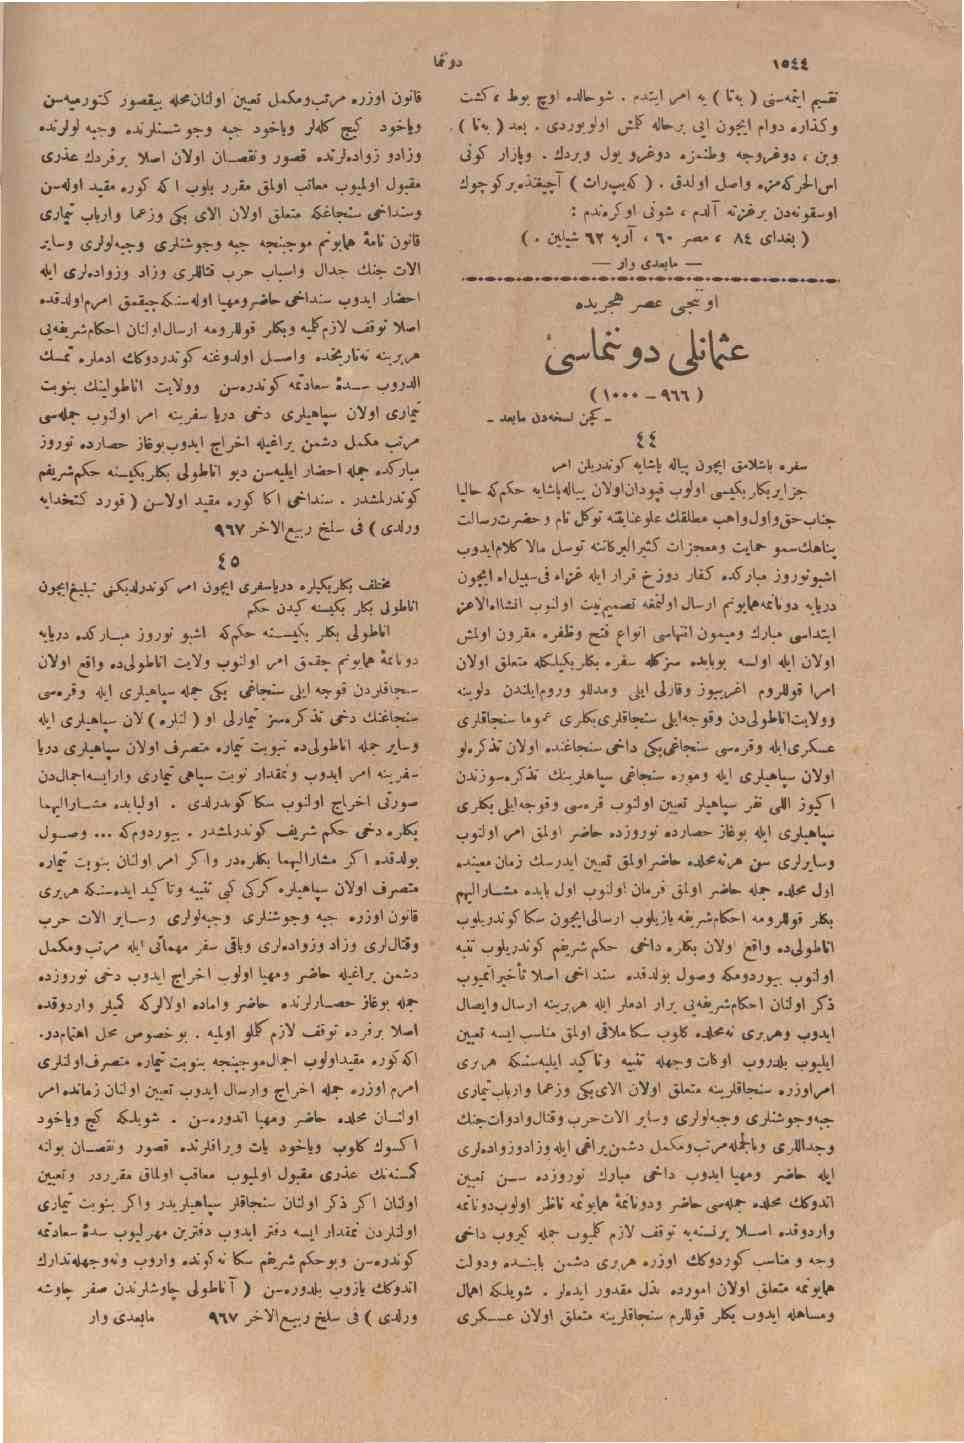 ١٥٤٤
دونما
تقسیم ایتمه‌سنی ( بەتا ) یه امر ایتدم . شو حالده اوچ بوط ، کشت
وکذاره دوام ایچون ایی برحاله کلمش اولویوردی . بعد ( بەتا )
وبن ، دوغروجه وطنمزه دوغرو یول ویردك . وپازار کونی
اوسقونه‌دن برغزته آلدم ، شونی اوکرەندم :
( بغدای ٨٤ ، مصر ٦٠ ، آرپه ٦٢ شیلین . )
— مابعدی وار —
اوننجی عصر هجریده
عثمانلی دوننماسی
( ٩٦٦ – ١٠٠٠ )
- کچن نسخه‌دن مابعد -
٤٤
سفره باشلامق ایچون پیاله پاشایه کوندریلن امر
جزایر بکلربکیسی اولوب قپودان اولان پیاله پاشایه حکم که حالیا
جناب حق واول واهب مطلقك علو عنایتنه توکل تام وحضرت رسالت
پناهك سمو حمایت ومعجزات کثیرالبرکاتنه توسل مالاکلام ایدوب
اشبو نوروز مبارکده کفار دوزخ قرار ایله غزاء فی سبیل الله ایچون
دریایه دونانمه همایونم ارسال اولنمغه تصمیم نیت اولنوب انشاءالله الاعز
ابتداسی مبارك ومیمون انتهاسی انواع فتح وظفره مقرون اولمش
اولان ایله اولسه بوبابده سزکله سفره بکلربکیلکله متعلق اولان
امرا قوللروم اغریبوز وقارلی ایلی ومدللو وروم ایلندن دلوینه
وولایت اناطولی‌دن وقوجه‌ایلی سنجاقلری بکلری عموما سنجاقلری
عسکری ایله وقره‌سی سنجاغی بکی داخی سنجاغنده اولان تذکره‌لو
اولان سپاهیلری ایله وموره سنجاغی سپاهلرینك تذکره‌سوزندن
اکیوز اللی نفر سپاهیلر تعیین اولنوب قره‌سی وقوجه‌ایلی بکلری
سپاهیلری ایله بوغاز حصارده نوروزده حاضر اولمق امر اولنوب
وسایرلری سن هرنه محلده حاضر اولمق تعیین ایدرسك زمان معینده
اول محلده جمله حاضر اولمق فرمان اولنوب اول بابده مشارالیهم
بکلر قوللرومه احکام شریفه یازیلوب ارسالی ایچون سکا کوندریلوب
اناطولی‌ده واقع اولان بکلره داخی حکم شریفم کوندریلوب تنبه
اولنوب بیوردومکه وصول بولدقده سنداخی اصلا تأخیر ایتمیوب
ذکر اولنان احکام شریفه‌یی یرار ادملر ایله هربرینه ارسال وایصال
ایدوب وهربری نه محلده کلوب سکا ملاقی اولمق مناسب ایسه تعیین
ایلیوب بلدروب اوکات وجهله تنبیه وتاکید ایلیه‌سنکه هربری
امر اوزره سنجاقلرینه متعلق اولان الای بکی وزعما وارباب تیماری
جبه وجوشنلری وجبه‌لولری وسایر الات حرب وقتال وادوات جنك
وجداللری وبالجمله مرتب ومکمل دشمن یراقی ایله وزاد وزواده‌لری
ایله حاضر ومهیا ایدوب داخی مبارك نوروزده سن تعیین
اتدوکك محلده جمله‌سی حاضر ودونانمۀ همایونمه ناظر اولوب دونانمه
واردوقده اصلا برنسنه‌یه توقف لازم کلمیوب جمله کیروب داخی
وجه ومناسب کوردوکك اوزره هربری دشمن بابنده ودولت
همایونمه متعلق اولان امورده بذل مقدور ایده‌لر . شویلکه اهمال
ومساهله ایدوب بکلر قوللرم سنجاقلرینه متعلق اولان عسکری
قانون اوزره مرتب ومکمل تعیین اولنان محله بیقصور کتورمیه‌سن
ویاخود کیج کله‌لر ویاخود جبه وجوشنلرنده وجبه لولرنده
وزادو زواده‌لرنده قصور ونقصان اولان اصلا برفردك عذری
مقبول اولمیوب معاتب اولمق مقرر بلوب اکه کوره مقید اوله‌سن
وسنداخی سنجاغکه متعلق اولان الای بکی وزعما وارباب تیماری
قانون نامۀ همایونم موجبنجه جبه وجوشنلری وجبه‌لولری وسایر
الات جنك جدال واسباب حرب قتاللری وزاد وزواده‌لری ایله
احضار ایدوب سنداخی حاضر ومهیا اوله‌سنکه چیقمق امرم اولدقده
اصلا توقف لازم کلمیه وبکلر قوللرومه ارسال اولنان احکام شریفه‌یی
هربرینه نه تاریخده واصل اولدوغنه کوندردوکك ادملره تمسك
الدروب سدۀ سعادتمه کوندره‌سن وولایت اناطولینك بنوبت
تیماری اولان سپاهیلری دخی دریا سفرینه امر اولنوب جمله‌سی
مرتب مکمل دشمن یراغیله اخراج ایدوب بوغاز حصارده نوروز
مبارکده جمله احضار ایلیه‌سن دیو اناطولی بکلربکیسنه حکم شریفم
کوندرلمشدر . سنداخی اکا کوره مقید اولاسن ( قورد کتخدایه
ورلدی ) فی سلخ ربیع الاخر ٩٦٧
٤٥
مختلف بکلربکیلره دریا سفری ایچون امر کوندرلدیکنی تبلیغ ایچون
اناطولی بکلر بکیسنه کیدن حکم
اناطولی بکلر بکیسنه حکم که اشبو نوروز مبارکده دریایه
دونانمۀ همایونم چقمق امر اولنوب ولایت اناطولی‌ده واقع اولان
سنجاقلردن قوجه ایلی سنجاغی بکی جمله سپاهیلری ایله وقره‌سی
سنجاغنك دخی تذکره‌سز تیمارلی او ( لنلره ) لان سپاهیلری ایله
وسایر جمله اناطولی‌ده بنوبت تیماره متصرف اولان سپاهیلری دریا
سفرینه امر ایدوب ونمقدار نوبت سپاهی تیماری وارایسه اجمال‌دن
صورتی اخراج اولنوب سکا کوندرلدی . اولبابده مشارالیهما
بکلره دخی حکم شریف کوندرلمشدر . بیوردوم که ... وصول
بولدقده اکر مشارالیهما بکلره‌در واکر امر اولنان بنوبت تیماره
متصرف اولان سپاهیلره کرکی کبی تنبیه وتاکید ایده‌سنکه هربری
قانون اوزره جبه وجوشنلری وجبه‌لولری وسایر الات حرب
وقتاللری وزاد وزواده‌لری وباقی سفر مهماتی ایله مرتب ومکمل
دشمن یراغیله حاضر ومهیا اولوب اخراج ایدوب دخی نوروزده
جمله بوغاز حصارلرنده حاضر واماده اولالرکه کمیلر واردوقده
اصلا برفرده توقف لازم کلملو اولمیه . بوخصوص محل اهتمامدر.
اکه کوره مقید اولوب اجمال موجبنجه بنوبت تیماره متصرف اولنلری
امرم اوزره جمله اخراج وارسال ایدوب تعیین اولنان زمانده امر
اولنان محلده حاضر ومهیا اندوره‌سن . شویلکه کیج ویاخود
اکسوك کلوب ویاخود یات ویراقلرنده قصور ونقصان بولنه
کمسنه‌نك عذری مقبول اولمیوب معاقب اولماق مقرردر وتعیین
اولنان اکر ذکر اولنان سنجاقلر سپاهیلریدر واکر بنوبت تیماری
اولنلردن نمقدار ایسه دفتر ایدوب دفترین مهرلیوب سدۀ سعادتمه
کوندره‌سن وبوحکم شریفم سکا نه کونده واروب ونه وجهله تدارك
اتدوکك یازوب بلدوره‌سن ( آناطولی چاوشلرندن صفر چاوشه
ورلدی ) فی سلخ ربیع الاخر ٩٦٧ مابعدی وار